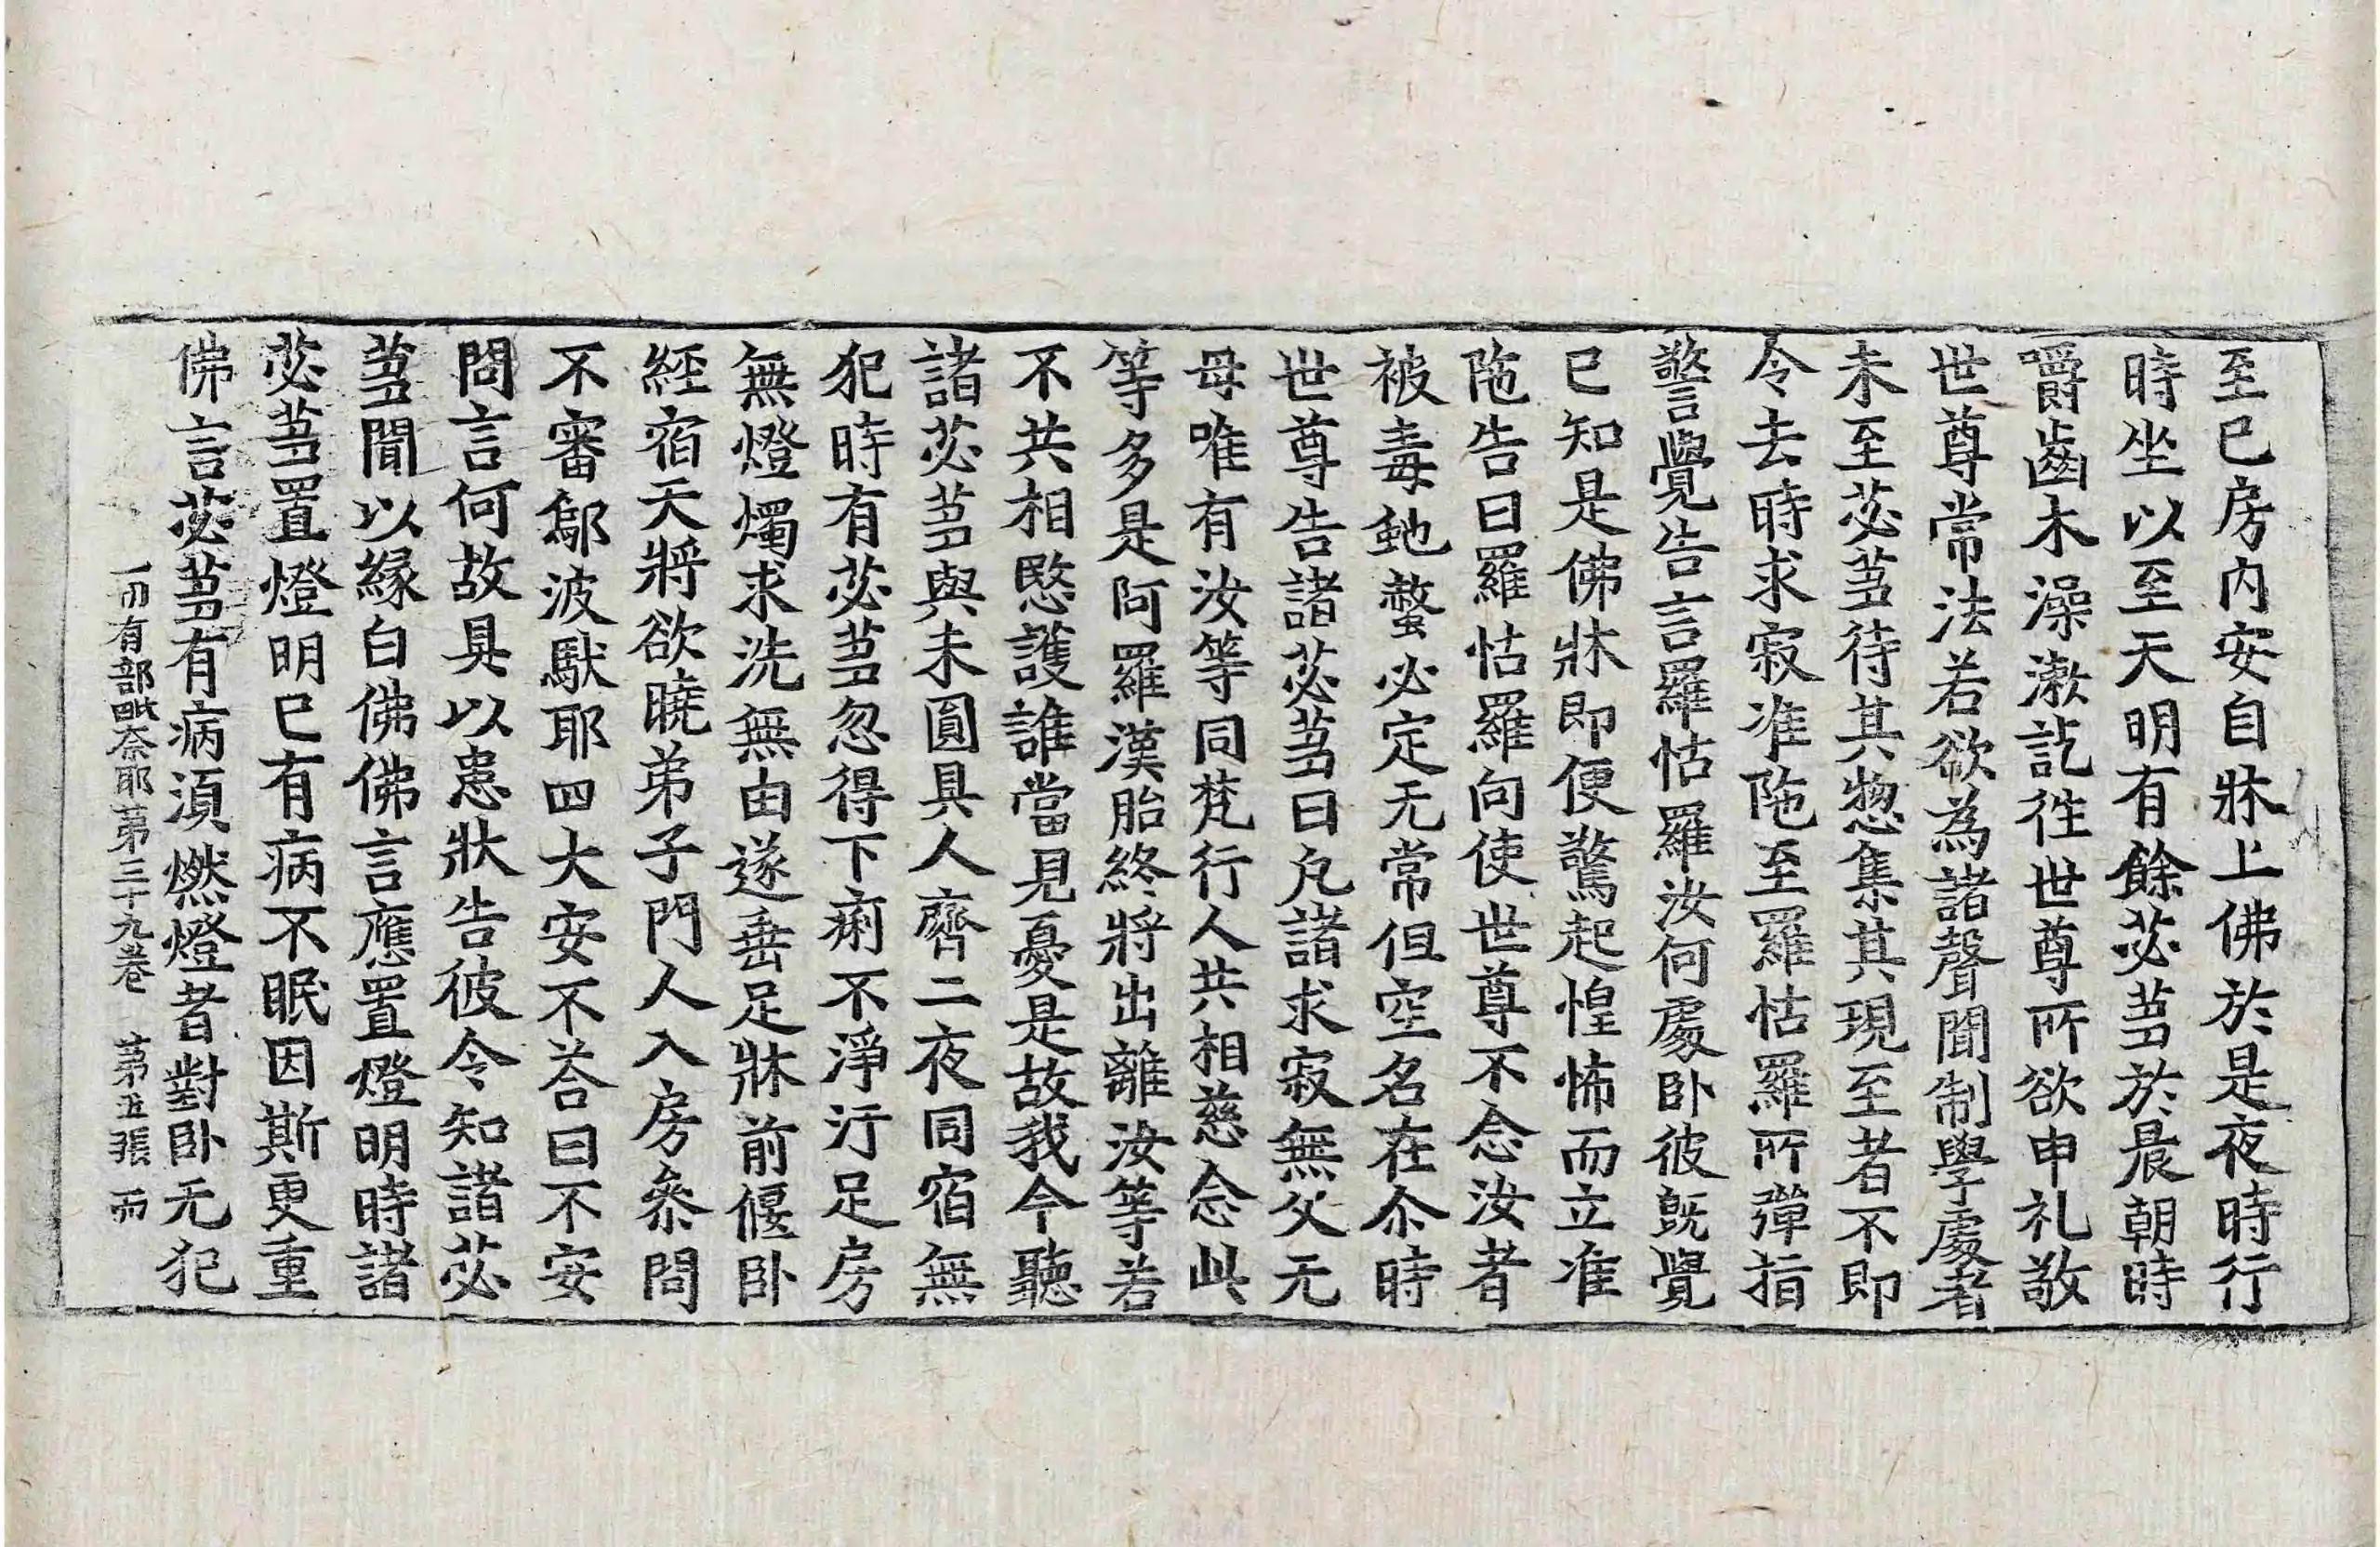 至已房内安自牀上佛於是夜時行
時坐以至天明有餘苾蒭於晨朝時
嚼齒木澡漱訖徃世尊所欲申礼敬
世尊常法若欲為諸聲聞制學處者
未至苾蒭待其惣集其現至者不即
令去時求寂准陁至羅怙羅所彈指
警覺告言羅怙羅汝何處卧彼旣覺
已知是佛牀即便驚起惶怖而立准
陁告曰羅怙羅向使世尊不念汝者
被毒虵螫必定无常但空名在尒時
世尊告諸苾蒭曰凡諸求寂無父无
母唯有汝等同梵行人共相慈念此
等多是阿羅漢胎終將出離汝等若
不共相愍護誰當見憂是故我今聽
諸苾蒭與未圓具人齊二夜同宿無
犯時有苾蒭忽得下痢不淨汙足房
無燈燭求洗無由遂垂足牀前偃卧
經宿天將欲曉弟子門人入房叅問
不審鄔波馱耶四大安不荅曰不安
問言何故具以患狀告彼令知諸苾
蒭聞以緣白佛佛言應置燈明時諸
苾蒭置燈明已有病不眠因斯更重
佛言苾蒭有病湏燃燈者對卧无犯
一切有部毗奈耶第三十九卷 第五張 而